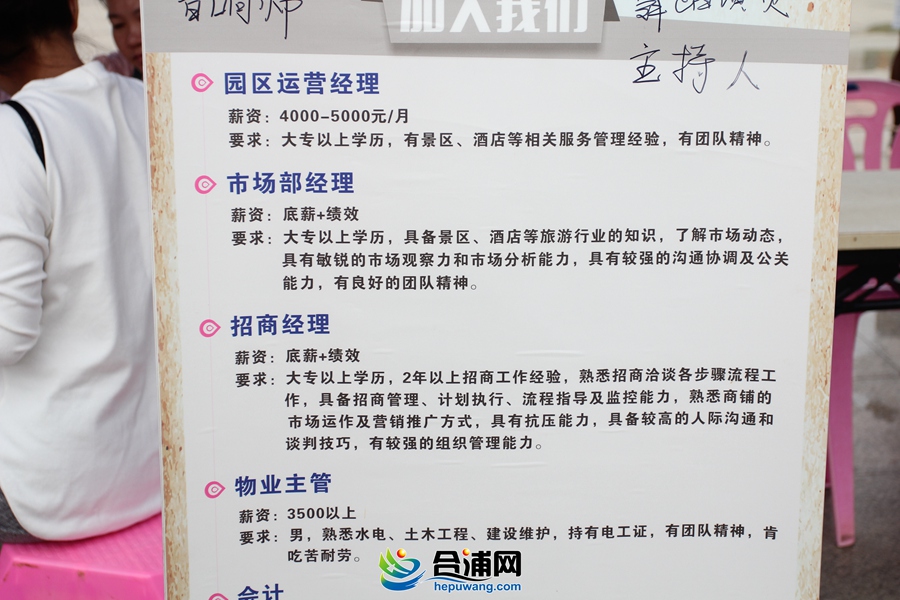 音响师
加入我们
主持人
园区运营经理
薪资：4000-5000元/月
要求：大专以上学历，有景区、酒店等相关服务管理经验，有团队精神。
市场部经理
薪资：底薪+绩效
要求：大专以上学历，具备景区、酒店等旅游行业的知识，了解市场动态，
具有敏锐的市场观察力和市场分析能力，具有较强的沟通协调及公关
能力，有良好的团队精神。
招商经理
薪资：底薪+绩效
要求：大专以上学历，2年以上招商工作经验，熟悉招商洽谈各步骤流程工
作，具备招商管理、计划执行、流程指导及监控能力，熟悉商铺的
市场运作及营销推广方式，具有抗压能力，具备较高的人际沟通和
谈判技巧，有较强的组织管理能力。
物业主管
薪资：3500以上
要求：男，熟悉水电、土木工程、建设维护，持有电工证，有团队精神，肯
吃苦耐劳。
会计
合浦网
hepuwang.com